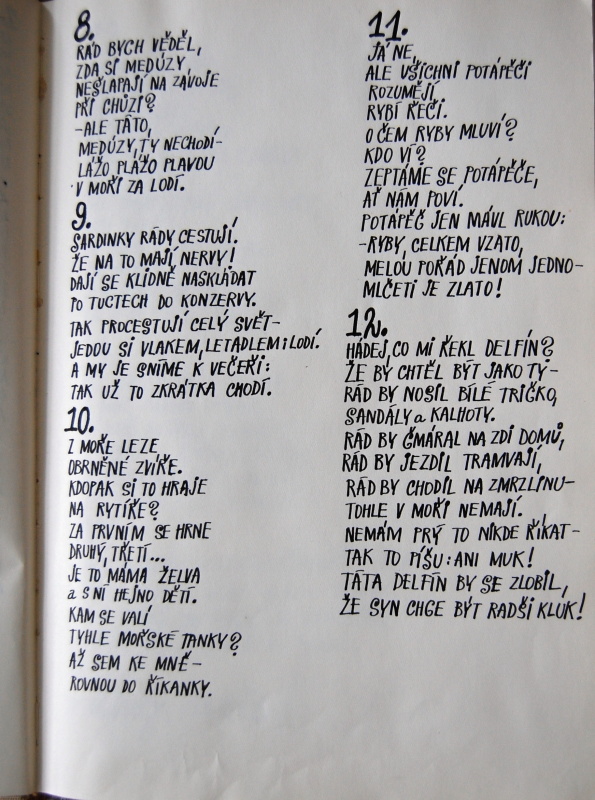 8.
RÁD BYCH VĚDĚL,
ZDA SI MEDÚZY
NEŠLAPAJÍ NA ZÁVOJE
PŘI CHŮZI?
-ALE TÁTO,
MEDÚZY, TY NECHODÍ-
LÁŽO PLÁŽO PLAVOU
V MOŘI ZA LODÍ.
9.
SARDINKY RÁDY CESTUJÍ.
ŽE NA TO MAJÍ NERVY!
DAJÍ SE KLIDNĚ NASKLÁDAT
PO TUCTECH DO KONZERVY.
TAK PROCESTUJÍ CELÝ SVĚT-
JEDOU SI VLAKEM, LETADLEM i LODÍ.
A MY JE SNÍME K VEČEŘI:
TAK UŽ TO ZKRÁTKA CHODÍ.
10.
Z MOŘE LEZE
OBRNĚNÉ ZVÍŘE.
KDOPAK SI TO HRAJE
NA RYTÍŘE?
ZA PRVNÍM SE HRNE
DRUHÝ, TŘETÍ...
JE TO MÁMA ŽELVA
a S NÍ HEJNO DĚTÍ.
KAM SE VALÍ
TYHLE MOŘSKÉ TANKY?
AŽ SEM KE MNĚ-
ROVNOU DO ŘÍKANKY.
11.
JÁ NE,
ALE VŠICHNI POTÁPĚČI
ROZUMĚJÍ
RYBÍ ŘEČI.
O ČEM RYBY MLUVÍ?
KDO VÍ?
ZEPTÁME SE POTÁPĚČE,
AŤ NÁM POVÍ.
POTÁPĚČ JEN MÁVL RUKOU:
-RYBY, CELKEM VZATO,
MELOU POŘÁD JENOM JEDNO-
MLČETI JE ZLATO!
12.
HÁDEJ, CO MI ŘEKL DELFÍN?
ŽE BY CHTĚL BÝT JAKO TY-
RÁD BY NOSIL BÍLÉ TRIČKO,
SANDÁLY a KALHOTY.
RÁD BY ČMÁRAL NA ZDI DOMŮ,
RÁD BY JEZDIL TRAMVAJÍ,
RÁD BY CHODIL NA ZMRZLINU-
TOHLE V MOŘI NEMAJÍ.
NEMÁM PRÝ TO NIKDE ŘÍKAT-
TAK TO PÍŠU: ANI MUK!
TÁTA DELFÍN BY SE ZLOBIL,
ŽE SYN CHCE BÝT RADŠI KLUK!